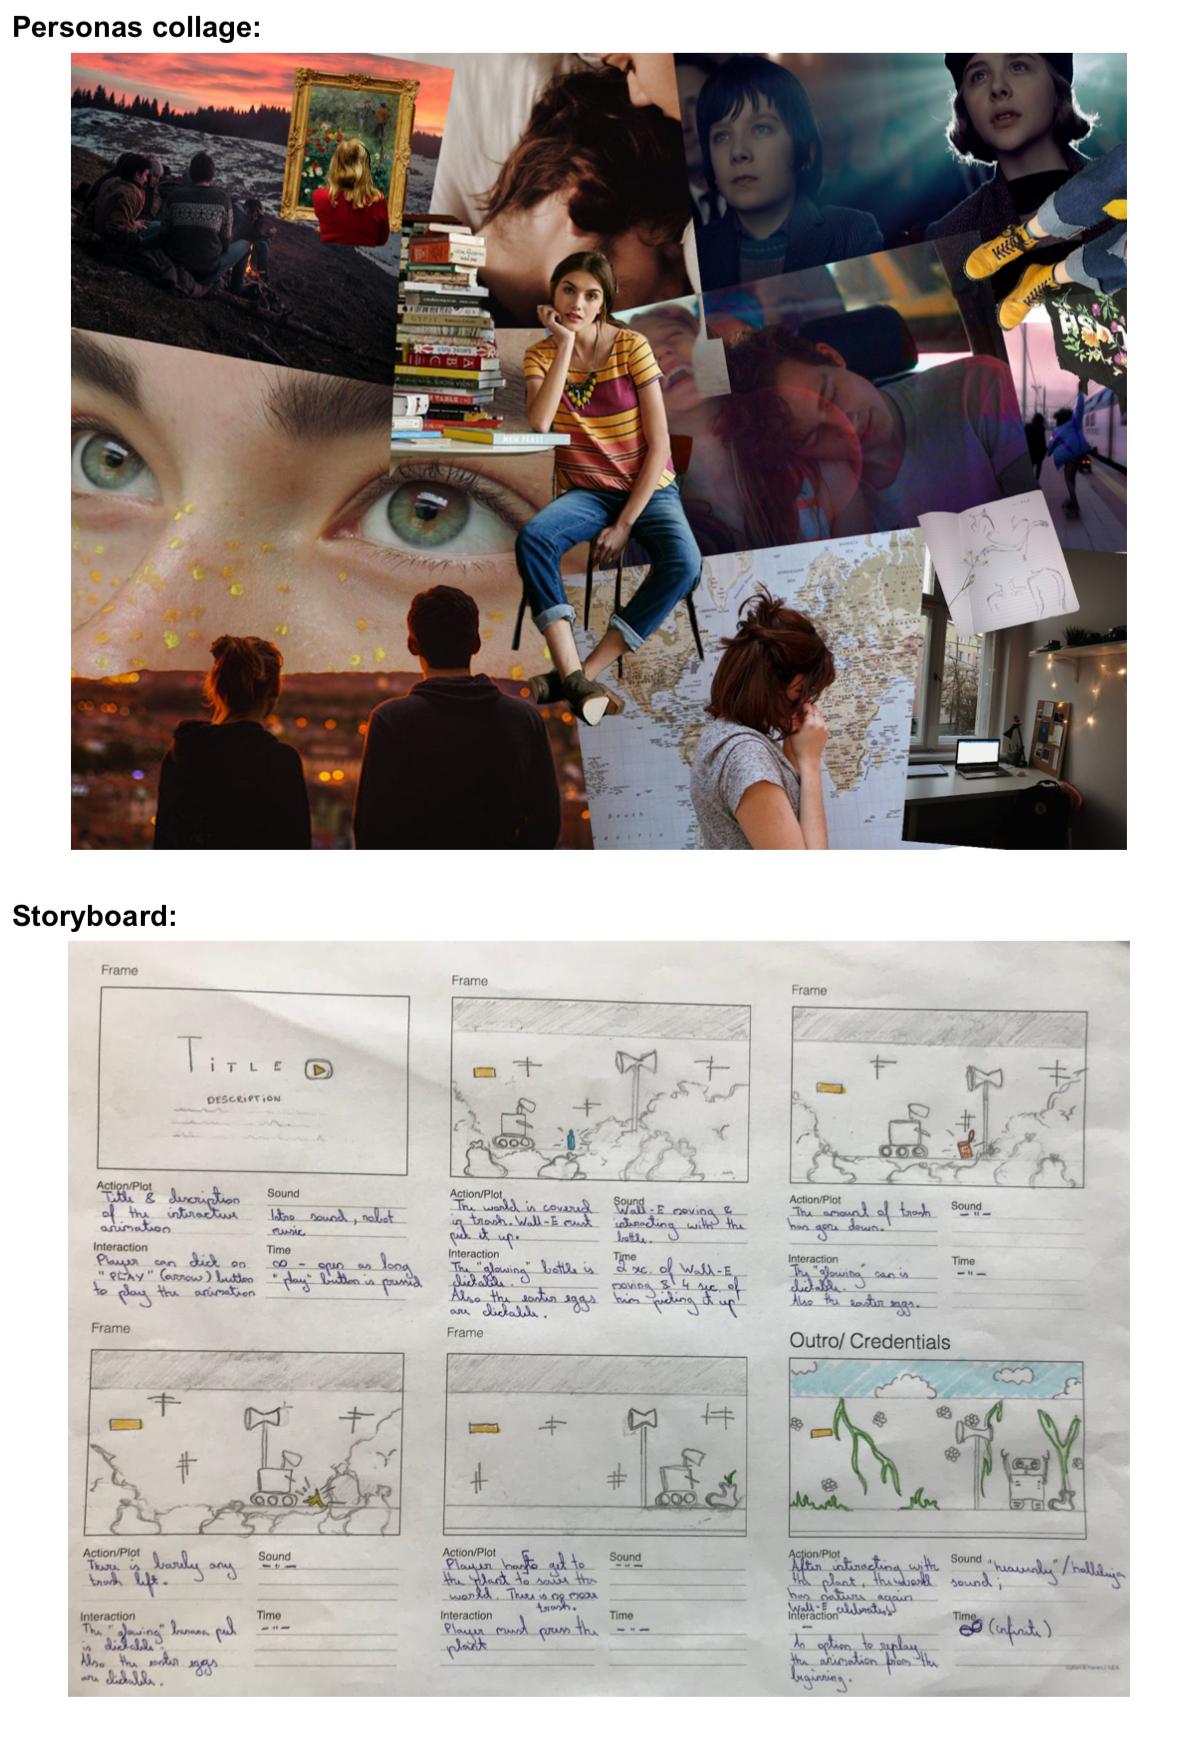 Personas collage:
GYPSY
TABLE
NEW FEAST
South
Pacific
Storyboard:
Frame
TiTLE
DESCRIPTION
Action/Plot
Title & description
of the interactive
animation
Sound
Intro sound, robot
music
Interaction
Player can click on
"PLAY" (arrow) button
to play the animation
Time
∞ - open as long
"play" button is pressed
Frame
Action/Plot
The world is covered
in trash. Wall-E must
put it up.
Sound
Wall-E moving &
interacting with the
bottle.
Interaction
The "glowing" bottle is
clickable.
Also the easter eggs
are clickable.
Time
2 sec. of Wall-E
moving & 4 sec. of
him picking it up
Frame
Action/Plot
The amount of trash
has gone down.
Sound
- " -
Interaction
The "glowing" can is
clickable.
Also the easter eggs.
Time
- " -
Frame
Action/Plot
There is barely any
trash left.
Sound
- " -
Interaction
The "glowing" banana peel
is clickable.
Also the easter eggs
are clickable.
Time
- " -
Frame
Action/Plot
Player has to get to
the plant to save the
world. There is no more
trash.
Sound
- " -
Interaction
Player must press the
plant
Time
- " -
Outro/ Credentials
Action/Plot
After interacting with
the plant, the world
has nature again
Wall-E celebrates
Sound
"heavenly"/halleluja
sound;
Interaction
-
In option to replay
the animation from the
beginning.
Time
(infinite)